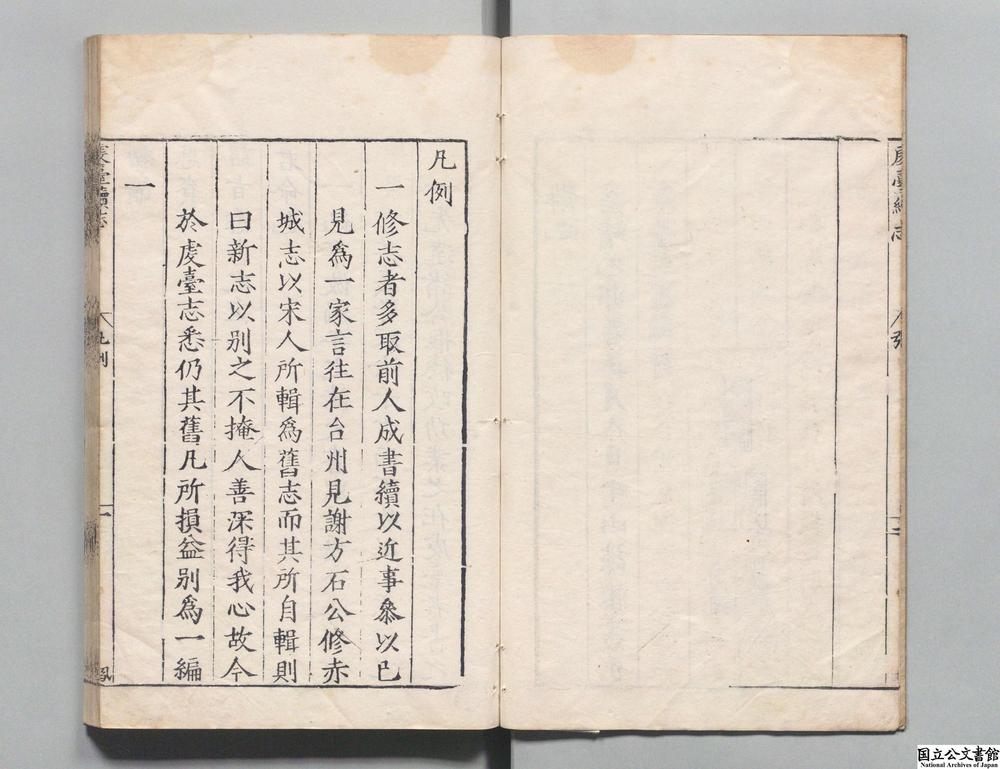 凡例
一修志者多取前人成書續以近事叅以已
見爲一家言往在台州見謝方石公修赤
城志以宋人所輯爲舊志而其所自輯則
曰新志以别之不掩人善深得我心故今
於虔臺志悉仍其舊凡所損益别爲一編
一
虔臺續志
凡例
一
虔臺續志
国立公文書館
National Archives of Japan